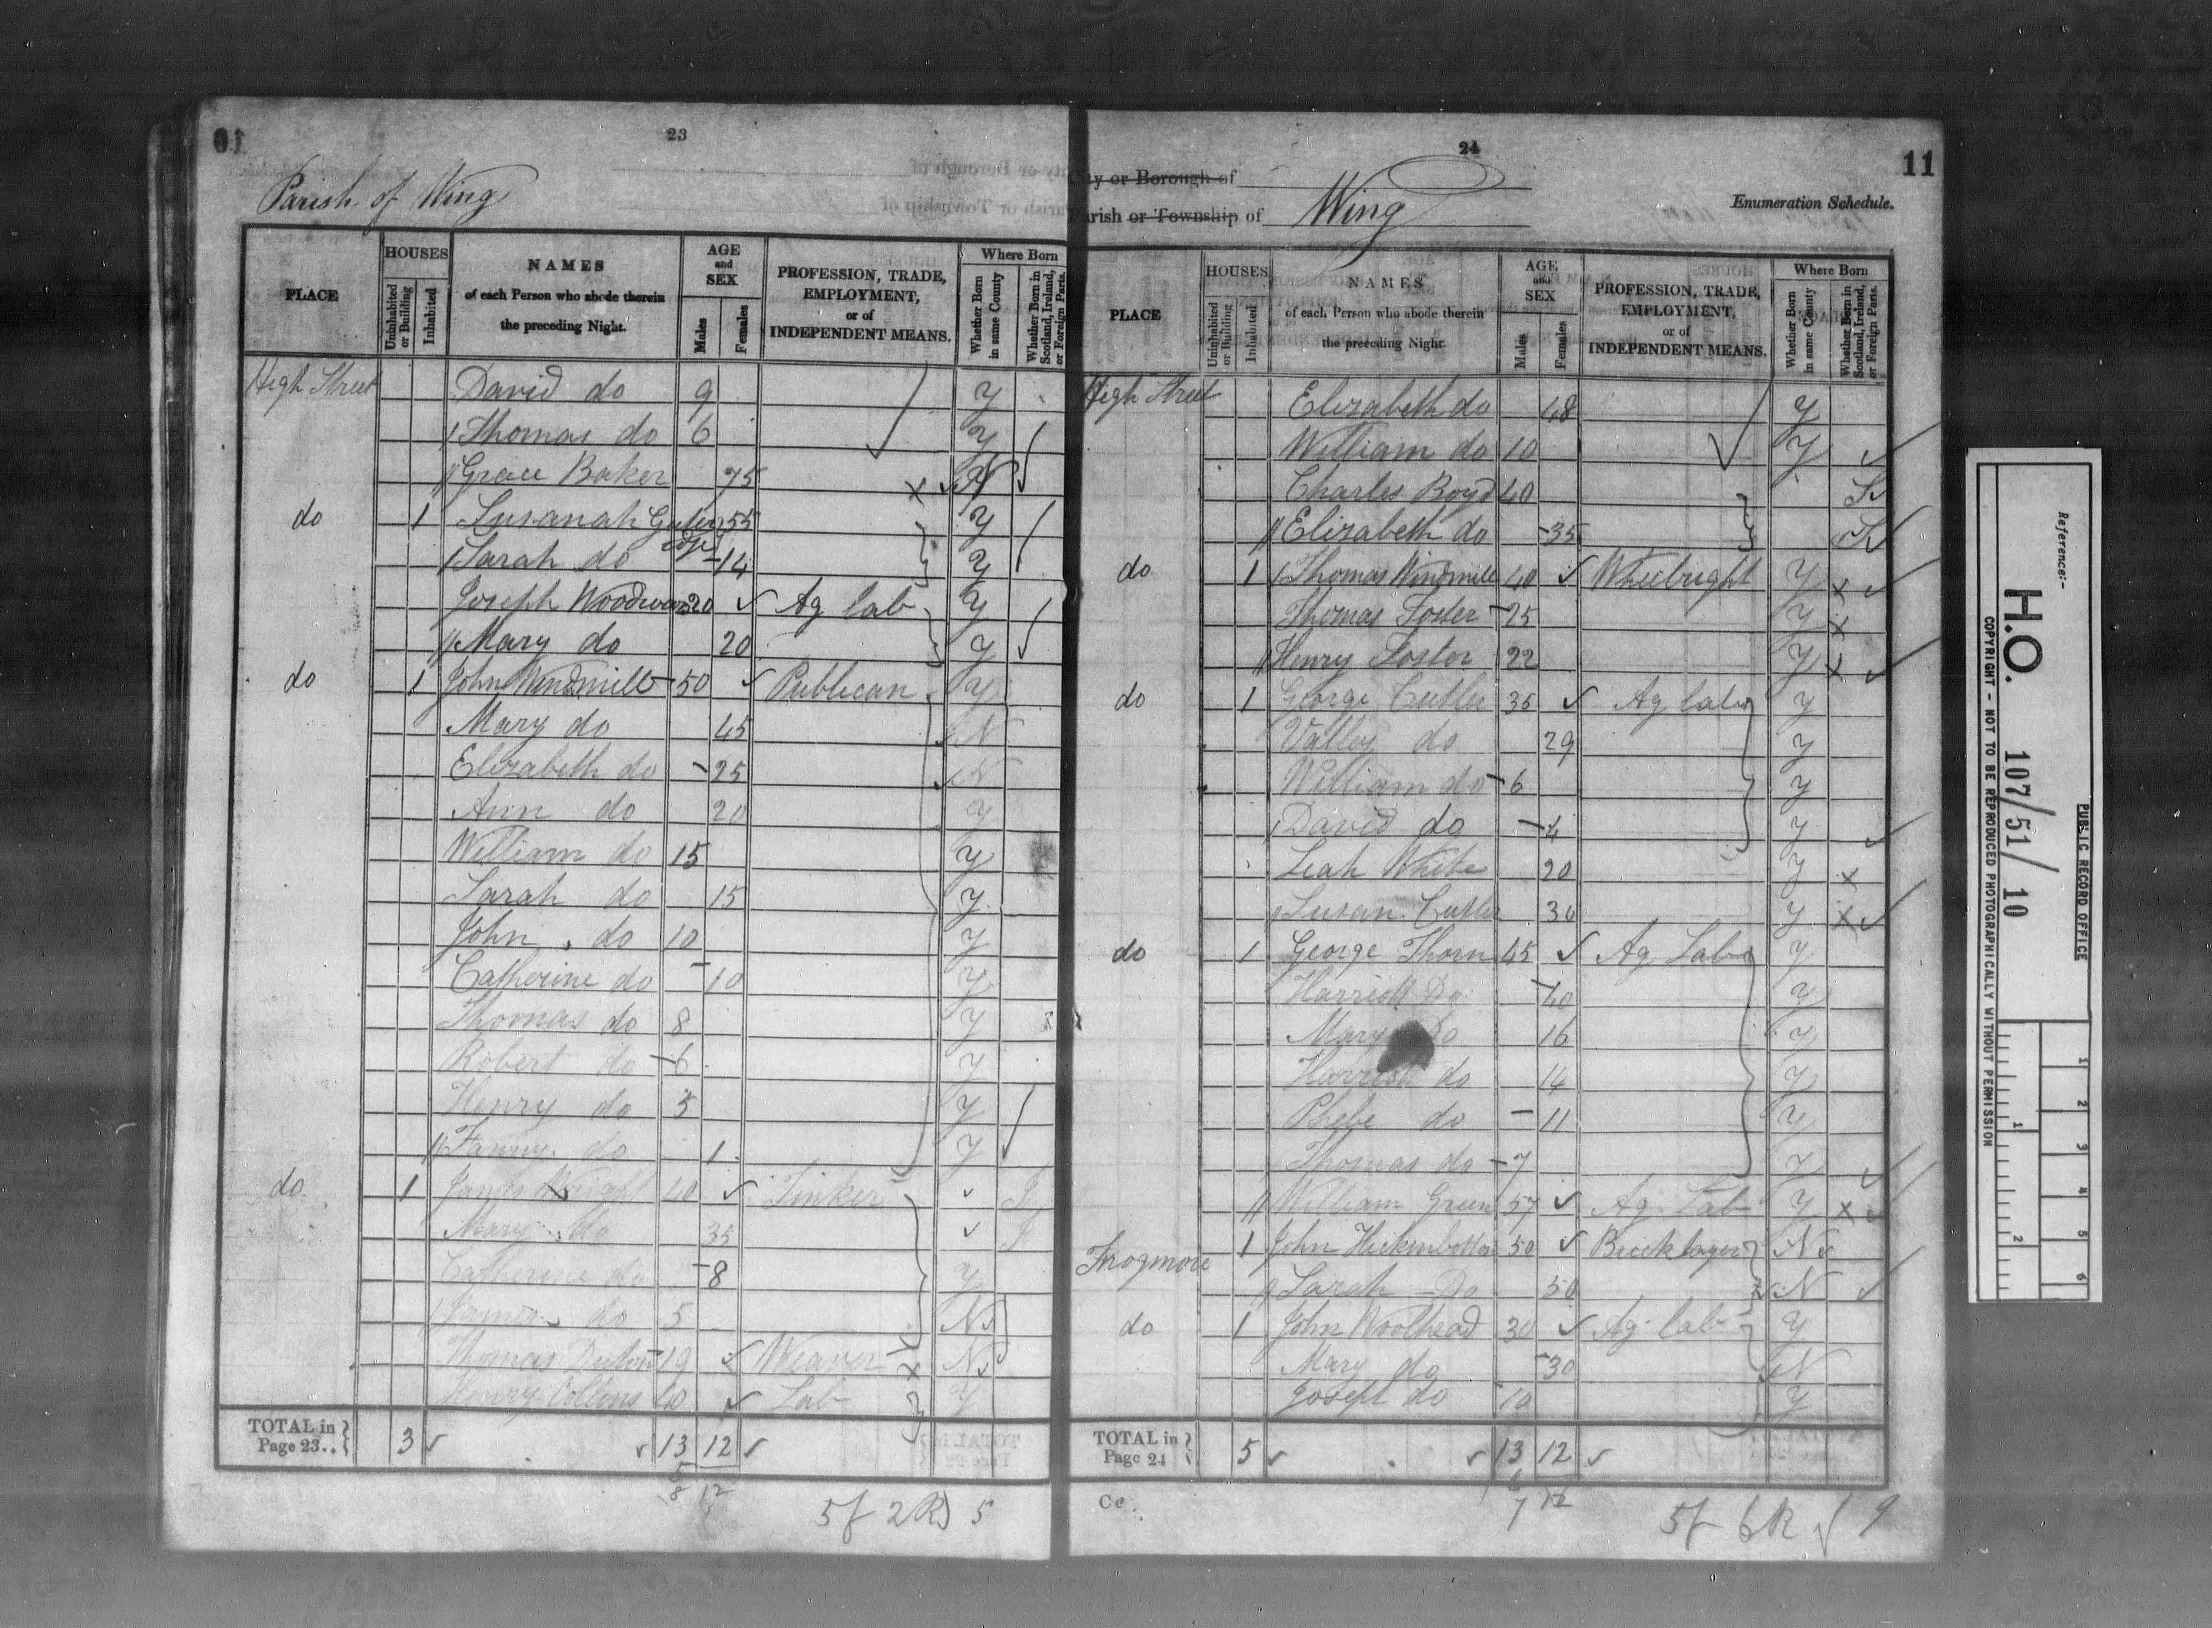 01
23
Parish of Wing
PLACE
HOUSES
Uninhabited or Building
Inhabited
NAMES
of each Person who abode therein
the preceding Night.
AGE
and
SEX
Males
Females
PROFESSION, TRADE,
EMPLOYMENT,
or of
INDEPENDENT MEANS.
Where Born
Whether Born in same County
Whether Born in Scotland, Ireland, or Foreign Parts.
High Street David do 9 Y
Thomas do 6 Y
Grace Baker 75 N
do 1 Susanah 55 Y
Sarah do 14 Y
Joseph 20 Ag lab Y
Mary do 20 Y
do 1 John Windmill 50 Publican Y
Mary do 45 N
Elizabeth do 25 N
Ann do 20 Y
William do 15 Y
Sarah do 15 Y
John do 10 Y
Catherine do 10 Y
Thomas do 8 Y
Robert do 6 Y
Henry do 3 Y
Fanny do 1 Y
do 1 James 40 Tinker I
Mary do 35 I
Catherine do 8 Y
James do 5 N
Thomas 19 Weaver N
Henry Collins 40 Lab Y
TOTAL in
Page 23.. 3 13 12
5
8 12
5f 2R 5
24
11
City or Borough of
Parish or Township of Wing
Enumeration Schedule.
PLACE
HOUSES
Uninhabited or Building
Inhabited
NAMES
of each Person who abode therein
the preceding Night.
AGE
and
SEX
Males
Females
PROFESSION, TRADE,
EMPLOYMENT,
or of
INDEPENDENT MEANS.
Where Born
Whether Born in same County
Whether Born in Scotland, Ireland, or Foreign Parts.
High Street Elizabeth do 48 Y
William do 10 Y
Charles Boyd 40 S
Elizabeth do 35 S
do 1 Thomas Windmill 40 Wheelright Y
Thomas Foster 25 Y
Henry Foster 22 Y
do 1 George Cutler 35 Ag lab Y
do 29 Y
William do 6 Y
David do 4 Y
Leah White 20 Y
Susan Cutler 30 Y
do 1 George Thorn 45 Ag Lab Y
Harriott Do 40 Y
Mary Do 16 Y
Harriott do 14 Y
Phebe do 11 Y
Thomas do 7 Y
William Green 57 Ag Lab Y
Frogmore 1 John Hickinbottom 50 Bricklayer N
Sarah Do 50 N
do 1 John Woolhead 30 Ag lab Y
Mary do 30 N
Joseph do 10 Y
TOTAL in
Page 24 5 13 12
6
7 12
Cc
5f 6R 9
Reference:-
H.O. 107/51/10
PUBLIC RECORD OFFICE
COPYRIGHT - NOT TO BE REPRODUCED PHOTOGRAPHICALLY WITHOUT PERMISSION
1
2
3
4
5
6
1
2